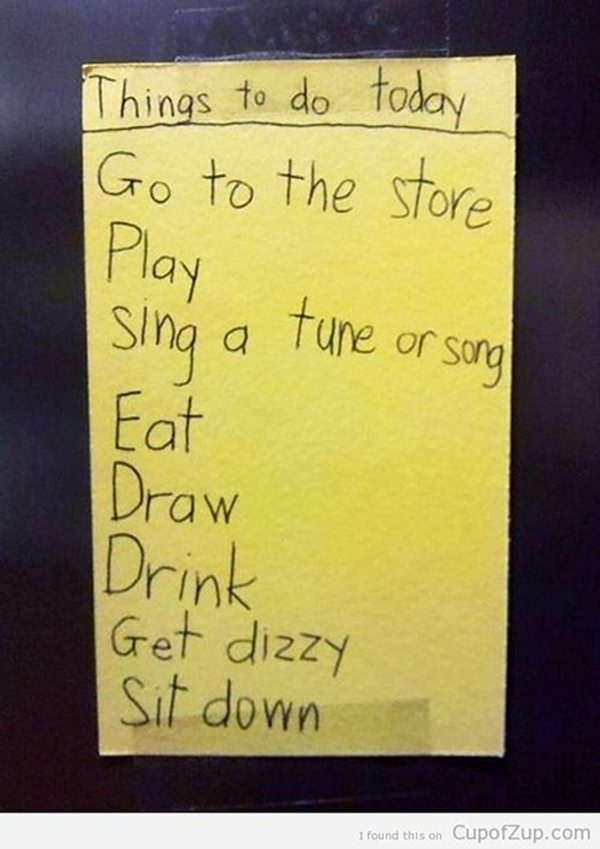 Things to do today
Go to the store
Play
Sing a tune or song
Eat
Draw
Drink
Get dizzy
Sit down
I found this on CupofZup.com